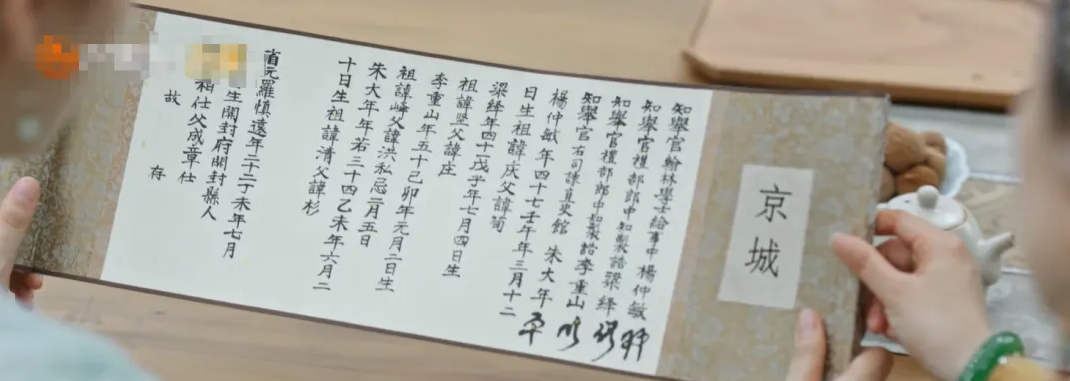 京城
知舉官翰林學士給事中 楊仲敏
知舉官禮部郎中知製誥梁繹
知舉官禮部郎中知製誥李重山
知舉官右司諫直史館 朱大年
楊仲敏年四十七壬年年三月十二
日生祖諱庆父諱菊
梁繹年四十戊子年七月四日生
祖諱 父諱庄
李重山年五十己卯年元月二日生
祖諱峰父諱洪私忌二月五日
朱大年年若三十四乙未年六月二
十日生祖諱清父諱杉
省元羅慎遠年二十二丁未年七月
生開封府開封縣人
仕父成章仕
故 存